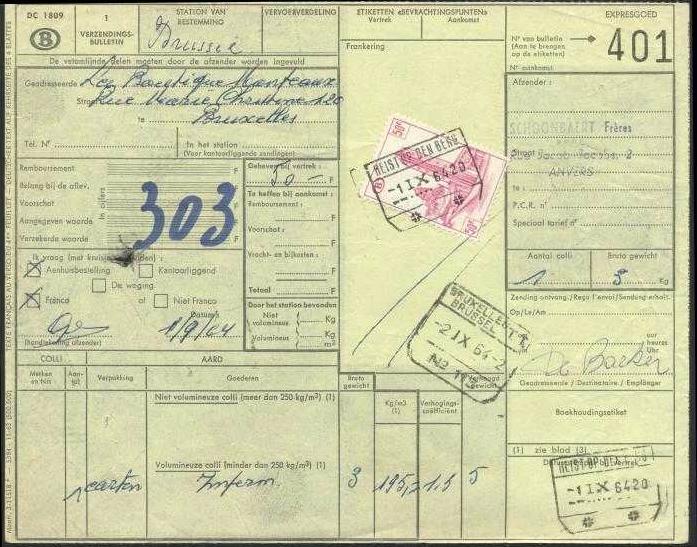 DC 1809
B
1
VERZENDINGS-
BULLETIN
STATION VAN
BESTEMMING
VERVOERVERDELING
ETIKETTEN «BEVRACHTINGSPUNTEN»
Vertrek Aankomst
EXPRESGOED
N° van bulletin
(Aan te brengen
op de etiketten)
N° aankomst:
401
De vetomlijnde delen moeten door de afzender worden ingevuld
Frankering
Geadresseerde
Straat
Rue Marie Christine 120
te Bruxelles
Tel. N°
In het station
(Voor kantoorliggende zendingen)
Afzender :
SCHOONBAERT Frères
Straat
Rue Jacob Jacobs 2
te : ANVERS
P.C.R. n°
Speciaal tarief n°
50c
50F
B
HEIST OP DEN BERG
-1 IX 6420
Remboursement F
Belang bij de aflev. F
Voorschot F
Aangegeven waarde F
Verzekerde waarde F
In cijfers
303
Geheven bij vertrek :
50 - F
Te heffen bij aankomst :
Remboursement :
F
Voorschot :
F
Vracht- en bijkosten :
F
Totaal F
Aantal colli
Bruto gewicht
1
3 Kg
Ik vraag (met kruisje aanduiden)
Aanhuisbestelling
Kantoorliggend
De weging
Franco of Niet Franco
Datum
1/9/64
(Handtekening afzender)
Door het station bevonden
Niet
volumineus Kg
Volumineus Kg
m³
BRUXELLES
BRUSSEL
-2 IX 64-2
Zending ontvang./Reçu l'envoi/Sendung erhalt.
Op/Le/Am
uur
heures
Uhr
De Backer
Geadresseerde / Destinataire / Empfänger
Boekhoudingsetiket
COLLI
AARD
Merken
en Nrs
Aan-
tal
Verpakking
Goederen
Bruto
gewicht
Kg/m3
(1)
Verhogings-
coëfficiënt
gewicht
Niet volumineuze colli (meer dan 250 kg/m³) (1)
(1) zie blad (3)
Volumineuze colli (minder dan 250 kg/m³) (1)
1 carton
3 195,2 1.5 5
-1 IX 6420